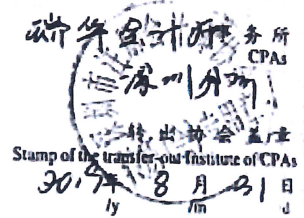 瑞华会计师事务所
CPAs
深圳分所
转出协会盖章
Stamp of the transfer-out Institute of CPAs
2019年 8 月 31 日
/y /m d